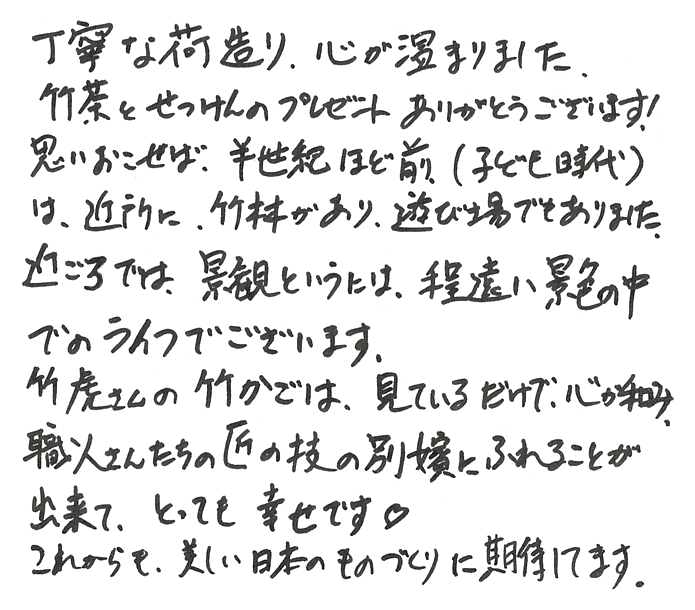 丁寧な荷造り、心が温まりました、
竹茶とせっけんのプレゼントありがとうございます!
思いおこせば、半世紀ほど前、(子ども時代)
は、近所に、竹林があり、遊び場でもありました、
近ごろでは、景観というには、程遠い景色の中
でのライフでございます、
竹虎さんの竹かごでは、見ているだけで、心が和み、
職人さんたちの匠の技の別嬪にふれることが
出来て、とっても幸せです♡
これからも、美しい日本のものづくりに期待してます。